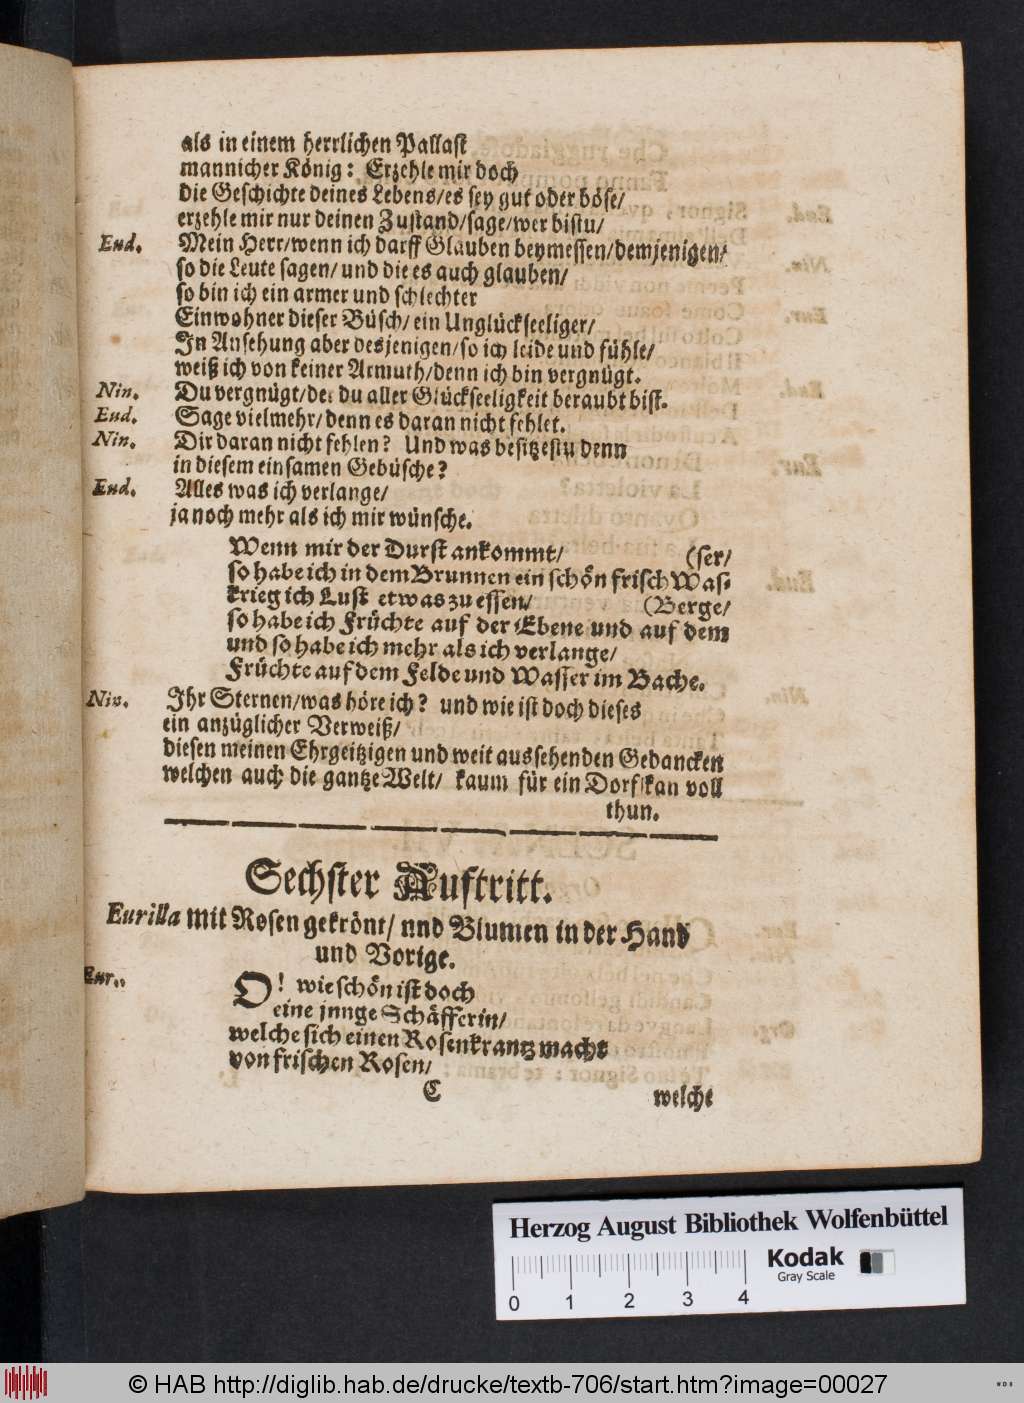 als in einem herrlichen Pallast
mannicher König: Erzehle mir doch
die Geschichte deines Lebens/es sey gut oder böse/
erzehle mir nur deinen Zustand/sage/wer bistu/
Eud. Mein Herr/wenn ich darff Glauben beymessen/demjenigen/
so die Leute sagen/und die es auch glauben/
so bin ich ein armer und schlechter
Einwohner dieser Büsch/ein Unglückseeliger/
In Ansehung aber desjenigen/so ich leide und fühle/
weiß ich von keiner Armuth/denn ich bin vergnügt.
Nin. Du vergnügt/der du aller Glückseeligkeit beraubt bist.
Eud. Sage vielmehr/denn es daran nicht fehlet.
Nin. Dir daran nicht fehlen? Und was besitzestu denn
in diesem einsamen Gebüsche?
Eud. Alles was ich verlange/
ja noch mehr als ich mir wünsche.
Wenn mir der Durst ankommt/ (ser/
so habe ich in dem Brunnen ein schön frisch Was-
krieg ich Lust etwas zu essen/ (Berge/
so habe ich Früchte auf der Ebene und auf dem
und so habe ich mehr als ich verlange/
Früchte auf dem Felde und Wasser im Bache.
Nin. Ihr Sternen/was höre ich? und wie ist doch dieses
ein anzüglicher Verweiß/
diesen meinen Ehrgeitzigen und weit aussehenden Gedancken
welchen auch die gantze Welt/ kaum für ein Dorf kan voll
thun.
Sechster Auftritt.
Eurilla mit Rosen gekrönt/ nnd Blumen in der Hand
und Vorige.
Eur. O! wie schön ist doch
eine jnnge Schäfferin/
welche sich einen Rosenkrantz macht
von frischen Rosen/
C welche
Herzog August Bibliothek Wolfenbüttel
Kodak
Gray Scale
0 1 2 3 4
© HAB http://diglib.hab.de/drucke/textb-706/start.htm?image=00027